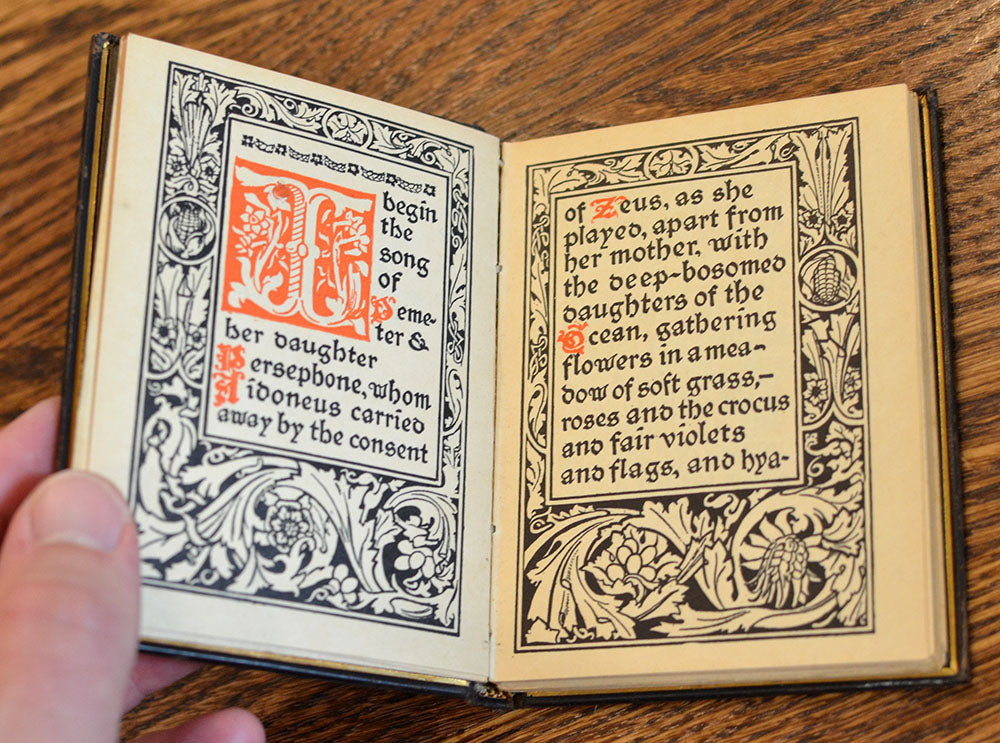 I begin
the
song
of
Deme-
ter &
her daughter
Persephone, whom
Aidoneus carried
away by the consent
of Zeus, as she
played, apart from
her mother, with
the deep-bosomed
daughters of the
Ocean, gathering
flowers in a mea-
dow of soft grass,—
roses and the crocus
and fair violets
and flags, and hya-